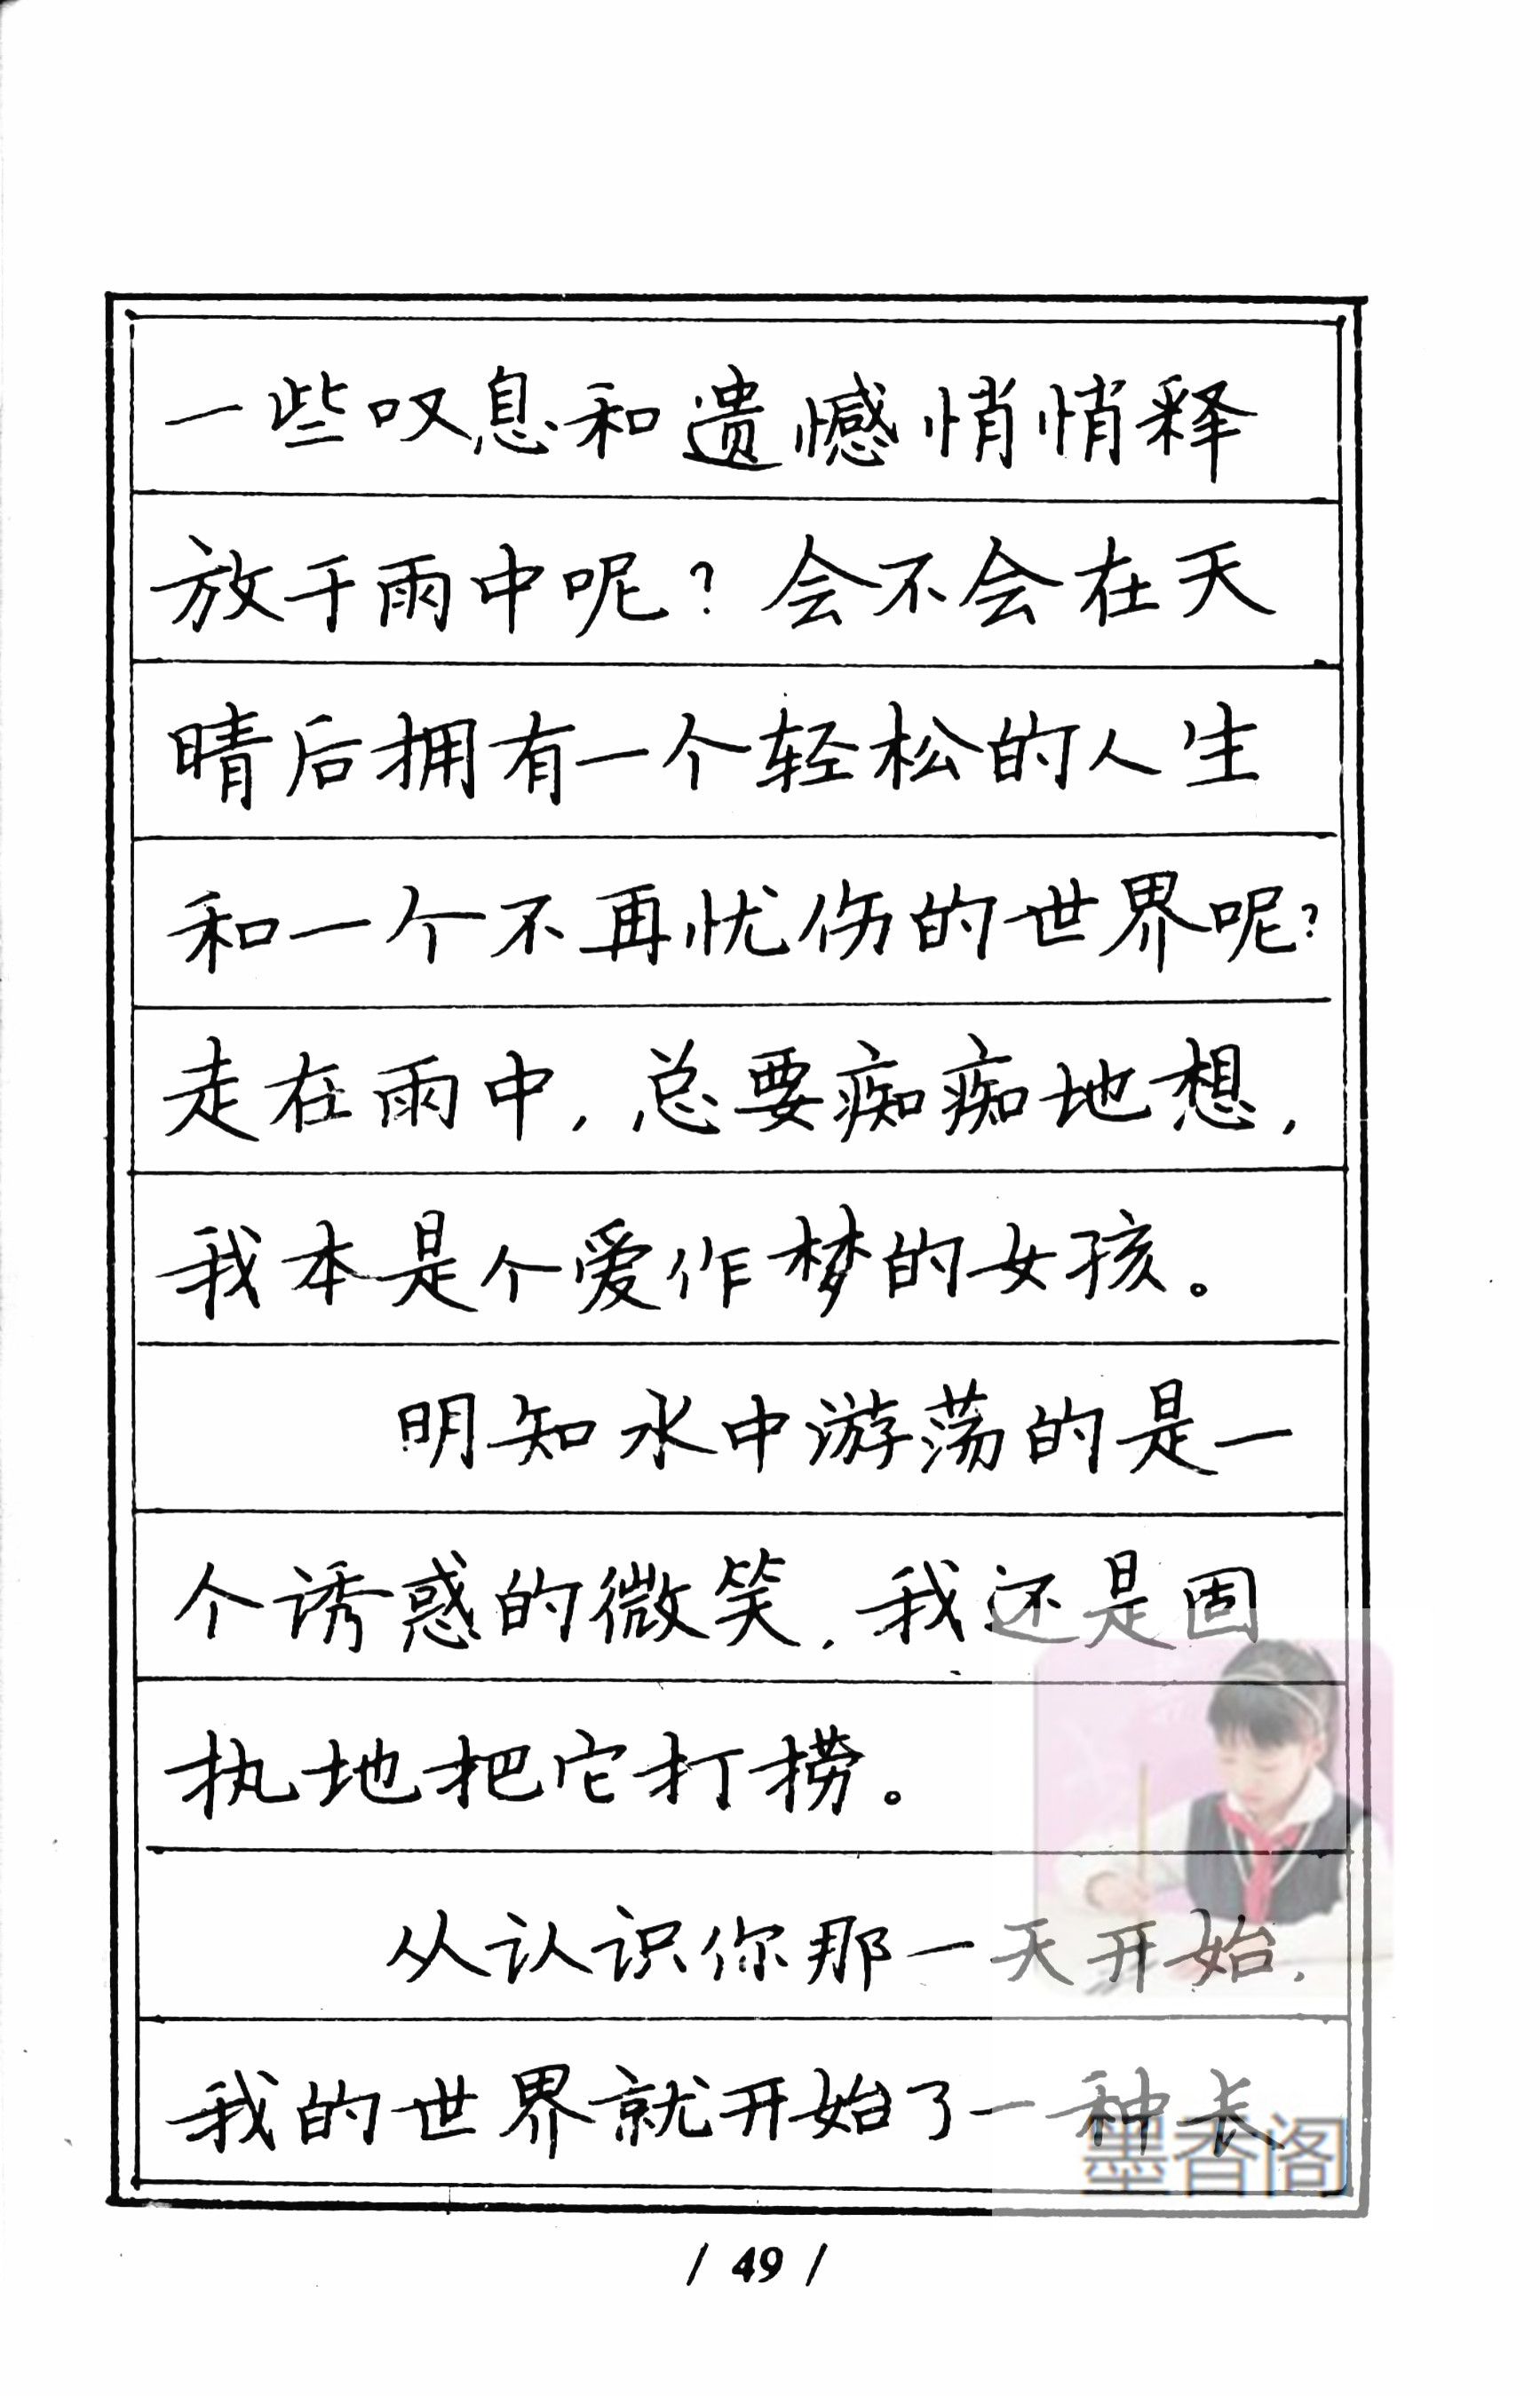 一些叹息和遗憾悄悄释
放于雨中呢？会不会在天
晴后拥有一个轻松的人生
和一个不再忧伤的世界呢？
走在雨中，总要痴痴地想，
我本是个爱作梦的女孩。
明知水中游荡的是一
个诱惑的微笑，我还是固
执地把它打捞。
从认识你那一天开始，
我的世界就开始了一种长
墨香阁
/ 49 /